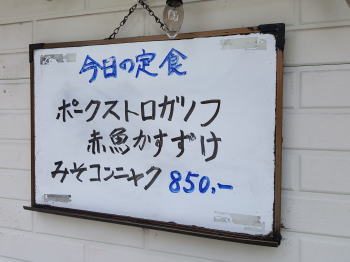 今日の定食
ポークストロガノフ
赤魚かすずけ
みそコンニャク 850.-